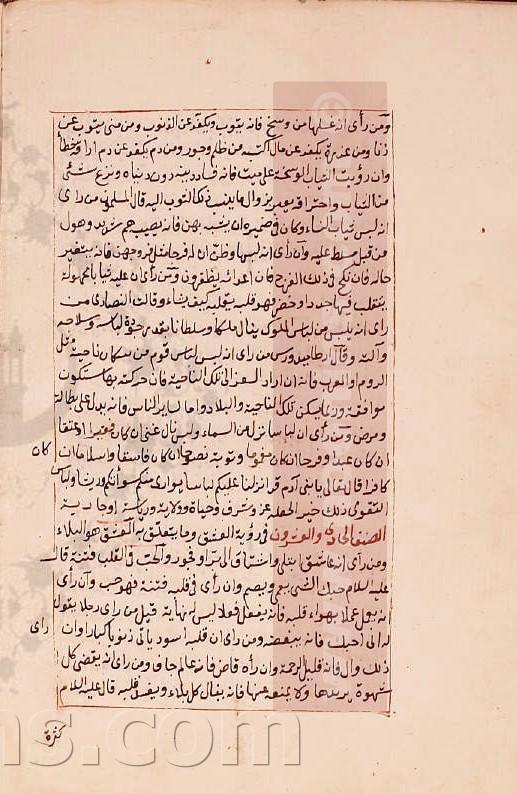 ومن رأى انه غسلها من وسخ فانه يتوب ويكفر عن الذنوب ومن منى يتوب عن
زنا ومن عذرة يكفر عن مال اكتسبه من ظلم وجور ومن دم يكفر عن دم اراقه خطأ
وان رؤيت الثياب الوسخة على ميت فانه فساد دينه دون دنياه ونزع شئ
من الثياب واحتراقه
انه لبس ثياب النساء وكان في ضميره ان يتشبه بهن فانه يصيب هم شديد وهول
من قبل مسلط عليه وان رأى انه لبسها وظن ان له فرجا مثل فروجهن فانه يتغير
حاله فان نكح في ذلك الفرج فان اعدائه يظفرون ومن رأى ان عليه ثيابا مجهولة
يتقلب فيها جدد او خضر فهو قلبه يقلبه كيف يشاء وقالت النصارى من
رأى انه يلبس من لباس الملوك ينال ملكا وسلطانا بقدر جودة لباسه وسلاحه
وآلته وقال ارطاميدورس من رأى انه لبس لباس قوم من سكان ناحية مثل
الروم والعرب فانه ان اراد السفر الى تلك الناحية فان حركته بها ستكون
موافقة وربما يسكن تلك الناحية والبلاد واما لساير الناس فانه يدل على بطالة
ومرض ومن رأى ان لباسا نزل من السماء ولبس نال غنى ان كان فقيرا او عتقا
ان كان عبدا وفرحا ان كان مغموما وتوبة نصوحا ان كان فاسقا واسلاما ان
كان
كافرا قال تعالى يا بنى آدم قد انزلنا عليكم لباسا يوارى سوأتكم وريشا ولباس
التقوى ذلك خير
الصنف الحادي والعشرون في رؤية العشق وما يتعلق به العشق هو البلاء
ومن رأى انه عاشق ابتلى واشتاق الى بر او فجور والحب في القلب فتنة قال
عليه السلام حبك الشئ يعمى ويصم وان رأى في قلبه فتنة فهو حب وان رأى
انه يعمل عملا يهواه قلبه فانه يفعل فعلا ليس له نهاية قيل من رأى رجلا يقول
له انى احبك فانه يبغضه ومن رأى ان قلبه اسود ياتى ذنوبا كبارا وان
رأى
ذلك وال فانه قليل الرحمة وان رآه قاض فانه عالم جاف ومن رأى انه يقضى كل
شهوة يريدها ولا يمنعه عنها فانه ينال كل بلاء ويفسق قلبه قال عليه السلام
كثرة
ns.com